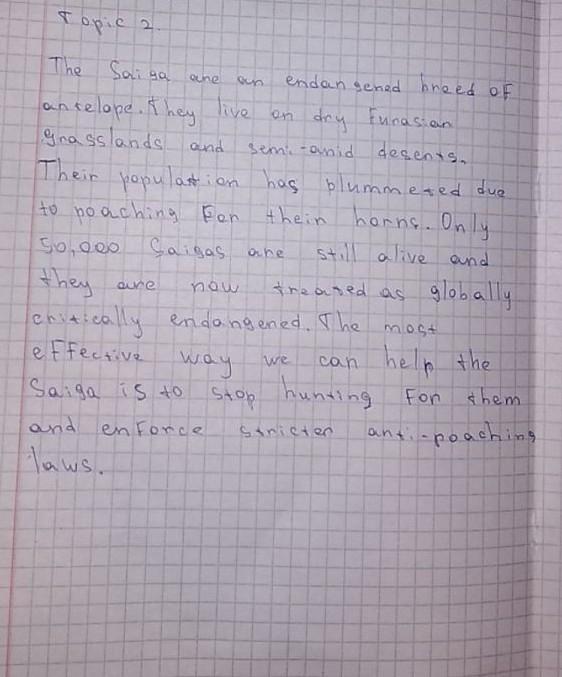 Topic 2.
The Saiga are an endangered breed of
antelope. They live on dry Eurasian
grasslands and semi-arid deserts.
Their population has plummeted due
to poaching For their horns. Only
50,000 Saigas are still alive and
they are now treated as globally
critically endangered. The most
effective way we can help the
Saiga is to stop hunting For them
and enforce stricter anti-poaching
laws.